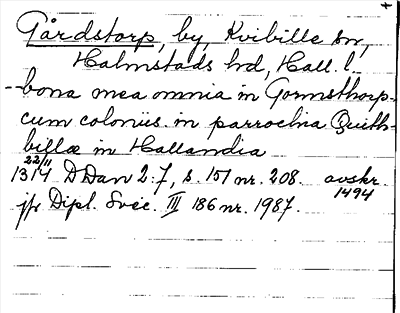 Gårdstorp, by, Kvibille sn,
Halmstads hd, Hall. l.
--bona mea omnia in Gormsthorp
cum coloniis in parrochia Quith-
billæ in Hallandia
22/11
1314 D Dan 2:7, s. 151 nr. 208. avskr.
1494
jfr Dipl. Svec. III 186 nr. 1987.